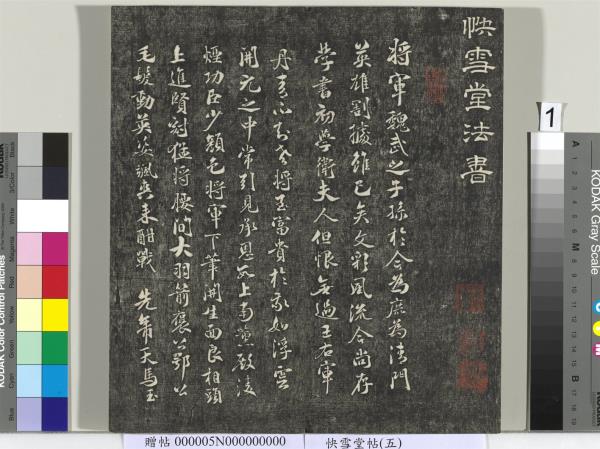 快雪堂法書
將軍魏武之子孫於今為庶為清門
英雄割據雖已矣文彩風流今尚存
学書初學衛夫人但恨無過王右軍
丹青不知老將至富貴於我如浮雲
開元之中常引見承恩數上南薰殿凌
煙功臣少顏色將軍下筆開生面良相頭
上進賢冠猛將腰間大羽箭褒公鄂公
毛髮動英姿颯爽來酣戰 先帝天馬玉
贈帖 000005N000000000 快雪堂帖(五)
1
KODAK Gray Scale
A 1 2 3 4 5 6 M 8 9 10 11 12 13 14 15 B 17 18 19
C
M
KODAK Color Control Patches
Black
3/Color
White
Magenta
Red
Yellow
Green
Cyan
Blue